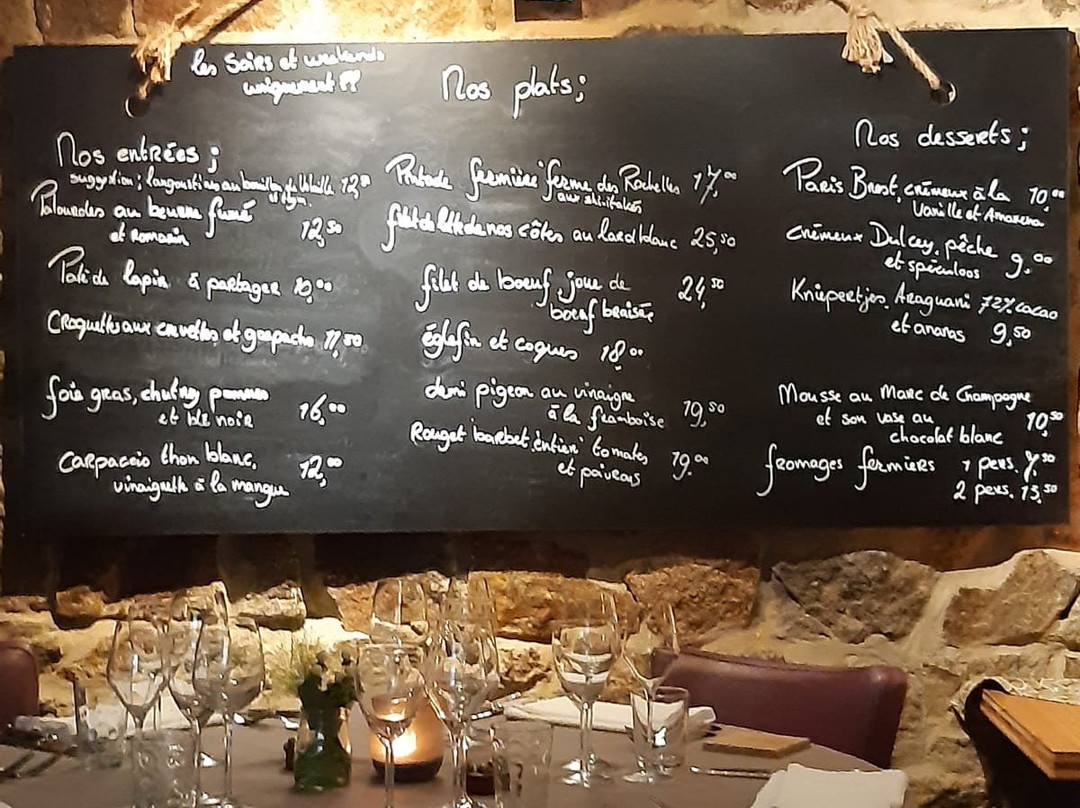 les Soirs et weekends
uniquement !!
Nos entrées ;
suggestion ; langoustines au bouillon de volaille 12,00
et thym
Palourdes au beurre fumé
et Romarin 12,50
Paté de lapin à partager 10,00
Croquettes aux crevettes et gaspacho 11,50
foie gras, chutney pommes
et blé noir 16,00
Carpaccio thon blanc,
vinaigrette à la mangue 12,00
Nos plats ;
Pintade fermière "ferme des Rochelles 17,00
aux shiitakés
filet de de nos côtes au lard blanc 25,50
filet de boeuf, joue de
boeuf braisée 24,50
églefin et coques 18,00
demi pigeon au vinaigre
à la framboise 19,50
Rouget barbet "entier" tomates
et poivrons 19,00
Nos desserts ;
Paris Brest, crémeux à la 10,00
Vanille et Amarena
crémeux Dulcey, pêche
et spéculoos 9,00
Kniepertjes, Araguani 72% cacao
et ananas 9,50
Mousse au Marc de Champagne
et son vase au 10,50
chocolat blanc
fromages fermiers 1 pers. 7,50
2 pers. 13,50